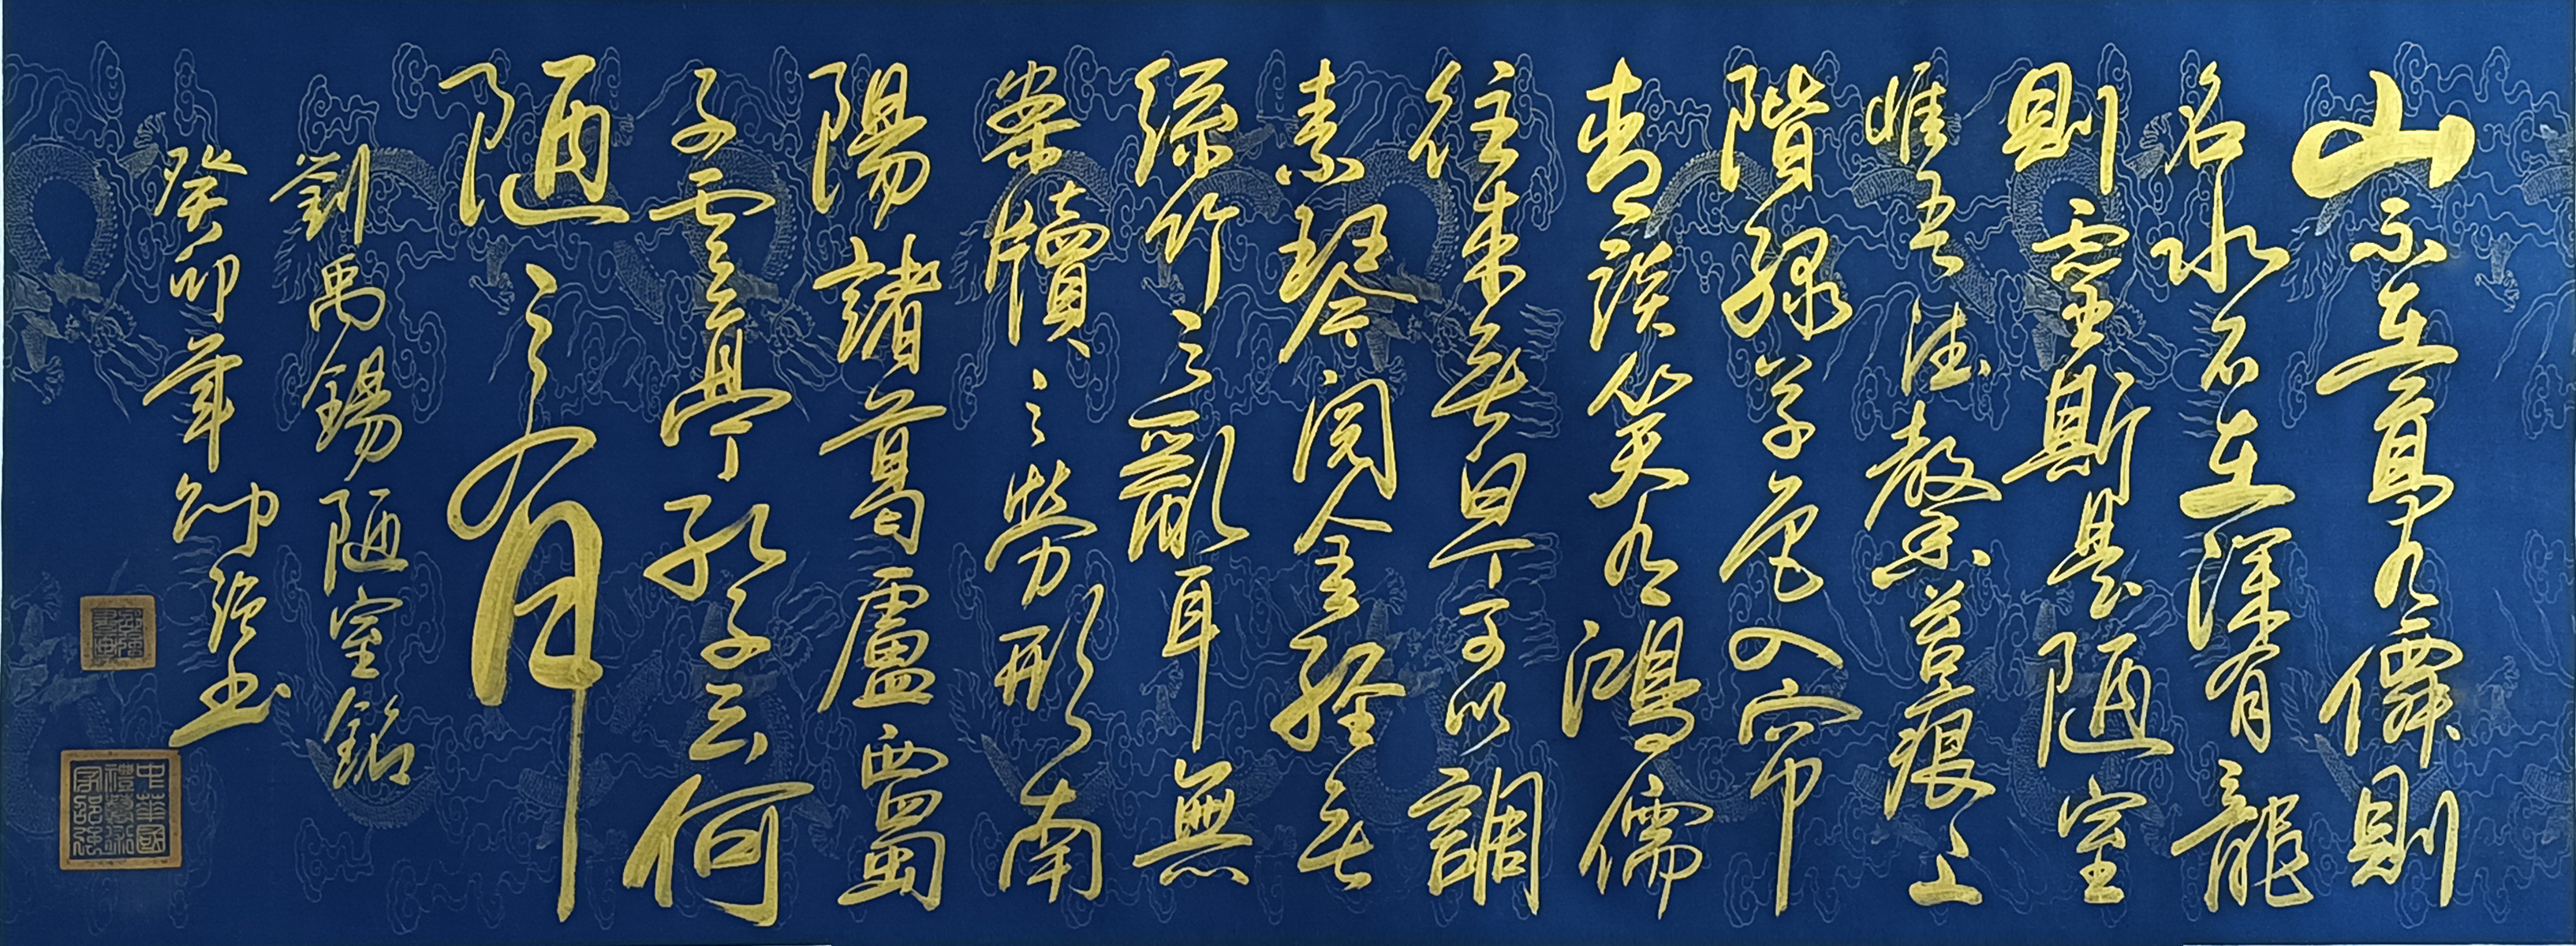 山不在高有僊則
名水不在深有龍
則靈斯是陋室
惟吾德馨苔痕上
階綠草色入帘
青談笑有鴻儒
往来无白丁可以調
素琴閱金經无
絲竹之亂耳無
案牘之勞形南
陽諸葛廬西蜀
子雲亭孔子云何
陋之有
劉禹錫陋室銘
癸卯年邵强书
中華國禮藝術家邵强